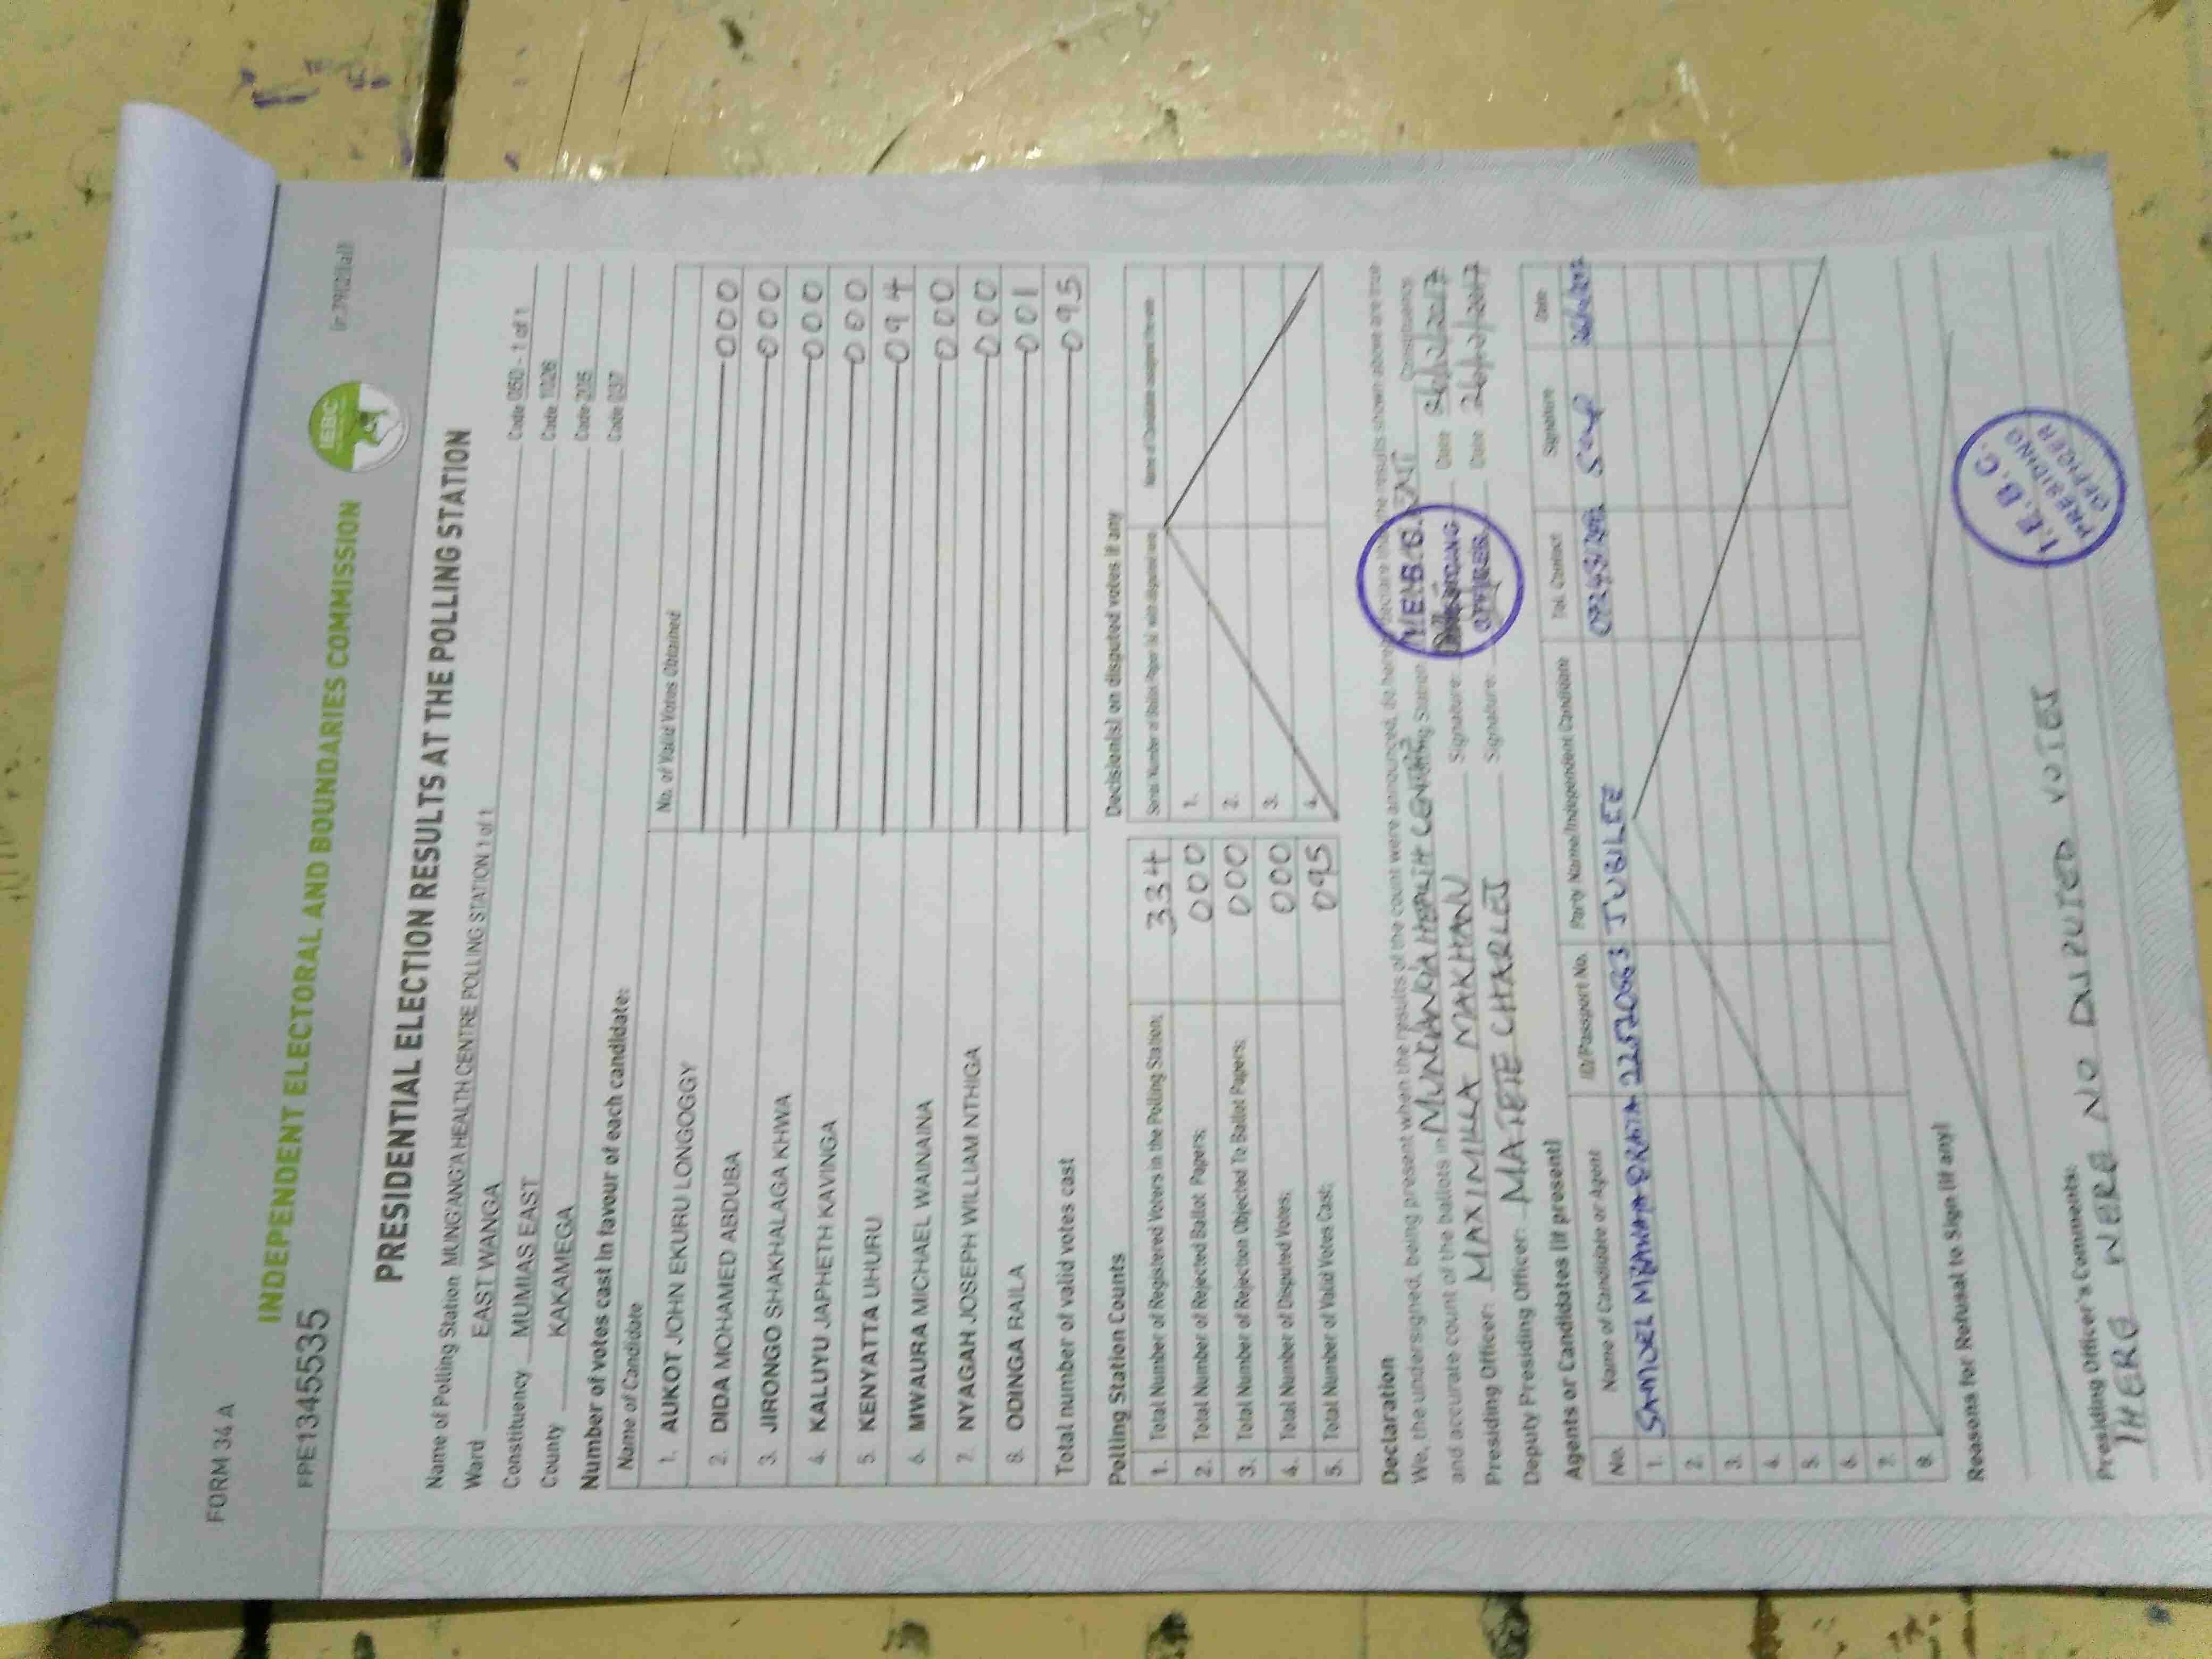 FORM 34 A
(r.79(2)(a))
INDEPENDENT ELECTORAL AND BOUNDARIES COMMISSION
IEBC
FPE1345535
PRESIDENTIAL ELECTION RESULTS AT THE POLLING STATION
Name of Polling Station MUNG'ANG'A HEALTH CENTRE POLLING STATION 1 of 1 Code 050 - 1 of 1
Ward EAST WANGA Code 1026
Constituency MUMIAS EAST Code 205
County KAKAMEGA Code 037
Number of votes cast in favour of each candidate:
Name of Candidate No. of Valid Votes Obtained
1. AUKOT JOHN EKURU LONGOGGY 000
2. DIDA MOHAMED ABDUBA 000
3. JIRONGO SHAKHALAGA KHWA 000
4. KALUYU JAPHETH KAVINGA 000
5. KENYATTA UHURU 094
6. MWAURA MICHAEL WAINAINA 000
7. NYAGAH JOSEPH WILLIAM NTHIGA 000
8. ODINGA RAILA 001
Total number of valid votes cast 095
Polling Station Counts
1. Total Number of Registered Voters in the Polling Station; 334
2. Total Number of Rejected Ballot Papers; 000
3. Total Number of Rejection Objected To Ballot Papers; 000
4. Total Number of Disputed Votes; 000
5. Total Number of Valid Votes Cast; 095
Decision(s) on disputed votes if any
1.
2.
3.
4.
Declaration
We, the undersigned, being present when the results of the count were announced, do hereby declare that the results shown above are true
and accurate count of the ballots in Polling Station Constituency
Presiding Officer: MAXIMILLA MAKHANU Signature: Date 26/10/2017
Deputy Presiding Officer: MATETE CHARLES Signature: Date 26/10/2017
I.E.B.C.
PRESIDING
OFFICER
Agents or Candidates (if present)
No. Name of Candidate or Agent ID/Passport No. Party Name/Independent Candidate Tel. Contact Signature Date
1. JUBILEE
2.
3.
4.
5.
6.
7.
8.
Reasons for Refusal to Sign (if any)
Presiding Officer's Comments:
THERE WERE NO DISPUTED VOTES
I.E.B.C.
PRESIDING
OFFICER